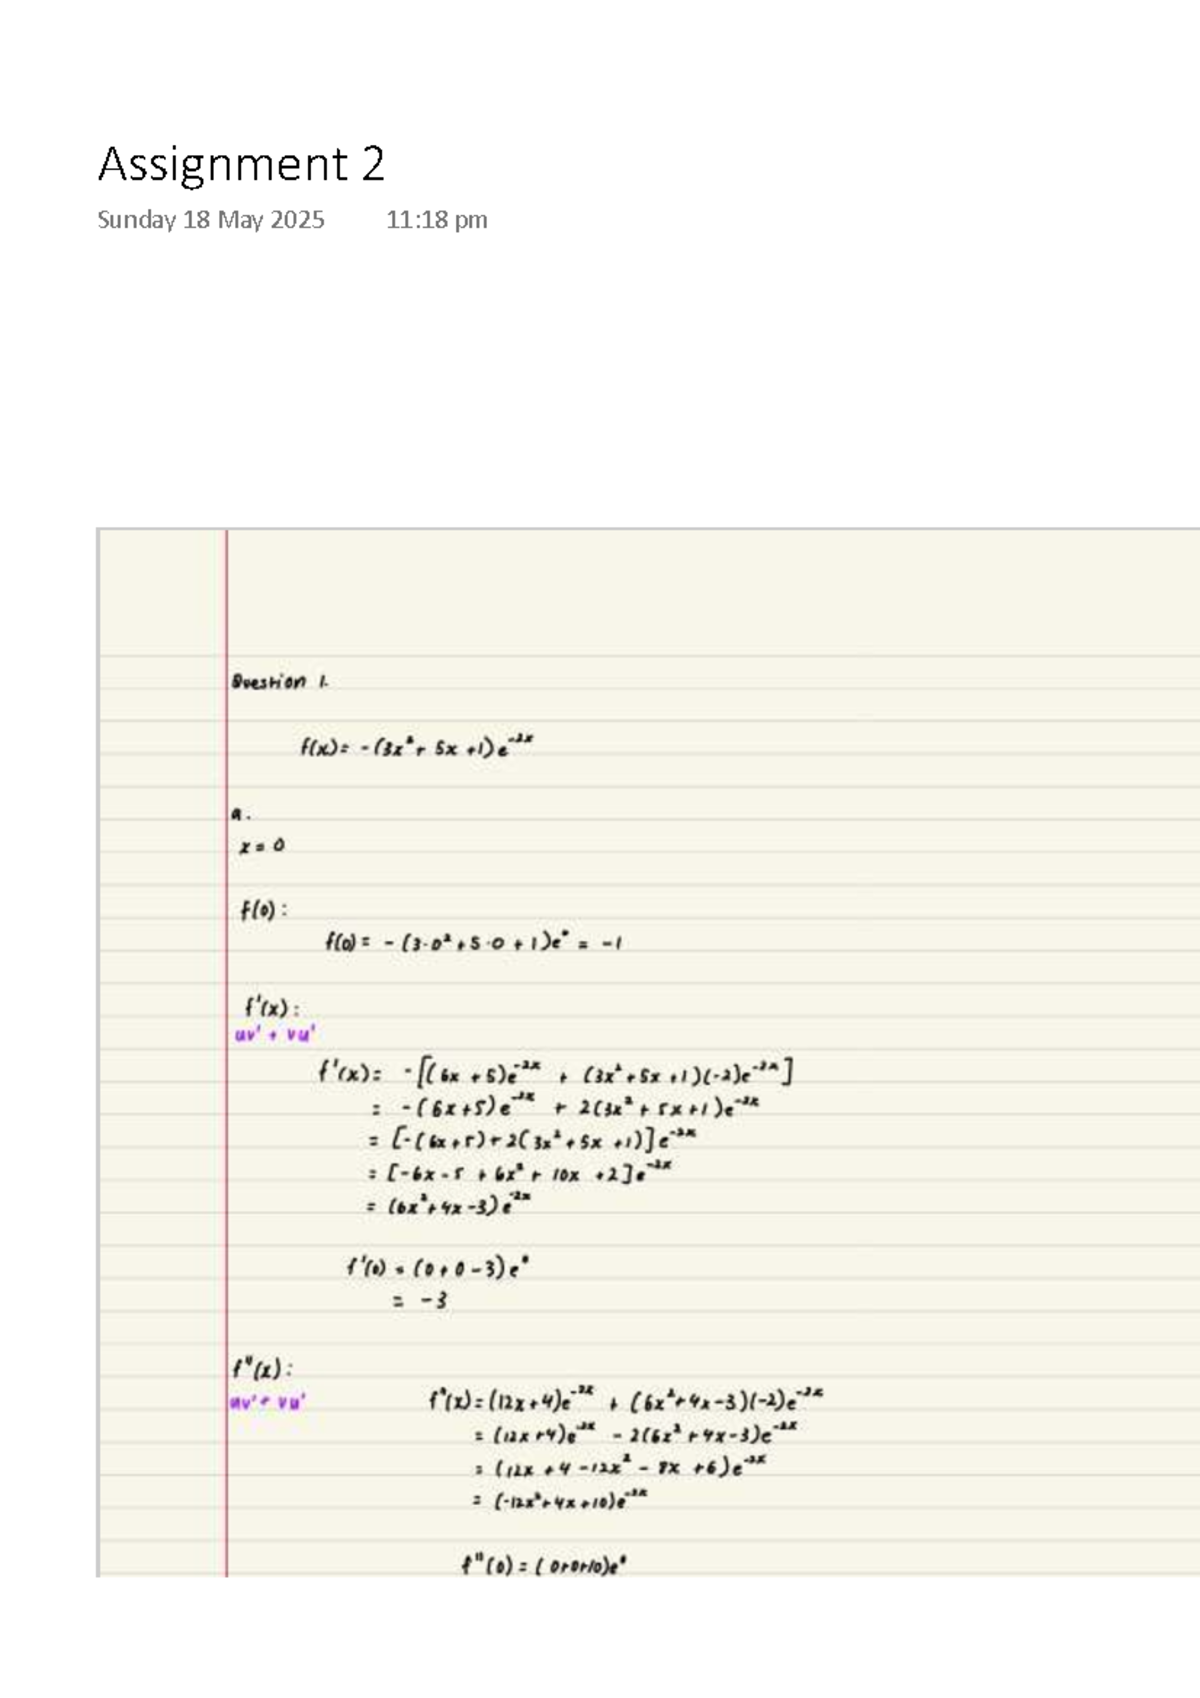 Assignment 2
Sunday 18 May 2025 11:18 pm
Question 1.
f(x) = -(3x² + 5x +1) e⁻²ˣ
a.
x = 0
f(0) :
f(0) = - (3·0² + 5·0 + 1)e⁰ = -1
f'(x) :
uv' + vu'
f'(x) = -[(6x + 5)e⁻²ˣ + (3x² + 5x +1)(-2)e⁻²ˣ]
= -(6x+5)e⁻²ˣ + 2(3x² + 5x+1)e⁻²ˣ
= [-(6x+5)+2(3x² + 5x +1)]e⁻²ˣ
= [-6x-5 + 6x² + 10x +2]e⁻²ˣ
= (6x²+4x-3)e⁻²ˣ
f'(0) = (0+0-3)e⁰
= -3
f"(x) :
uv' + vu'
f"(x) = (12x+4)e⁻²ˣ + (6x²+4x-3)(-2)e⁻²ˣ
= (12x+4)e⁻²ˣ - 2(6x²+4x-3)e⁻²ˣ
= (12x +4 -12x² - 8x +6)e⁻²ˣ
= (-12x²+4x+10)e⁻²ˣ
f"(0) = (0+0+10)e⁰